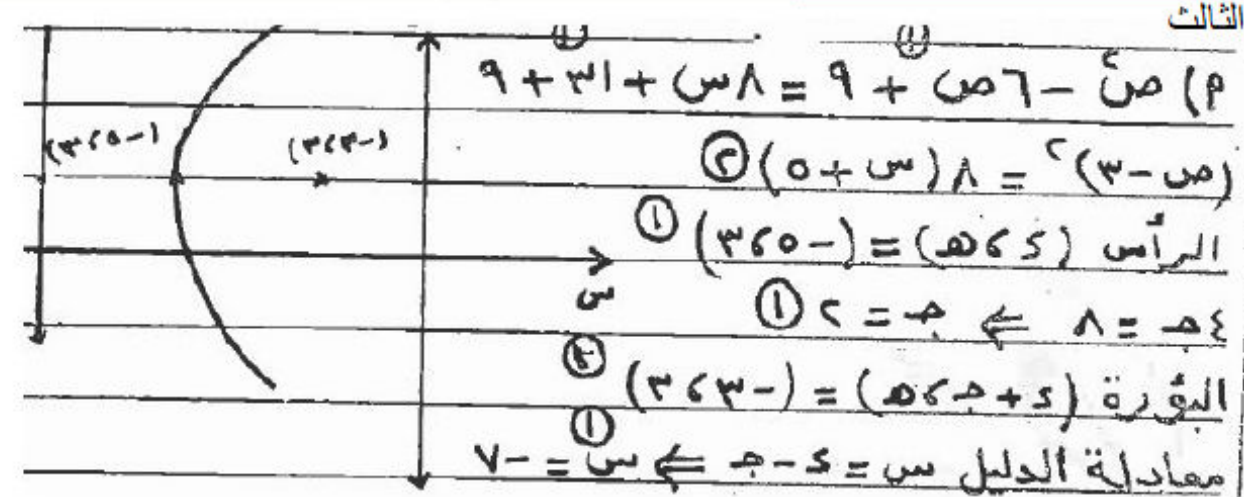 الثالث
(١) (١)
م) ص² - ٦ص + ٩ = ٨س + ٣١ + ٩
(ص - ٣)² = ٨(س + ٥) (٢)
الرأس (د، هـ) = (-٥، ٣) (١)
٤جـ = ٨ ⇐ جـ = ٢ (١)
البؤرة (د + جـ، هـ) = (-٣، ٣) (٢)
معادلة الدليل س = د - جـ ⇐ س = -٧ (١)
(-٣، ٣)
(-٥، ٣)
س